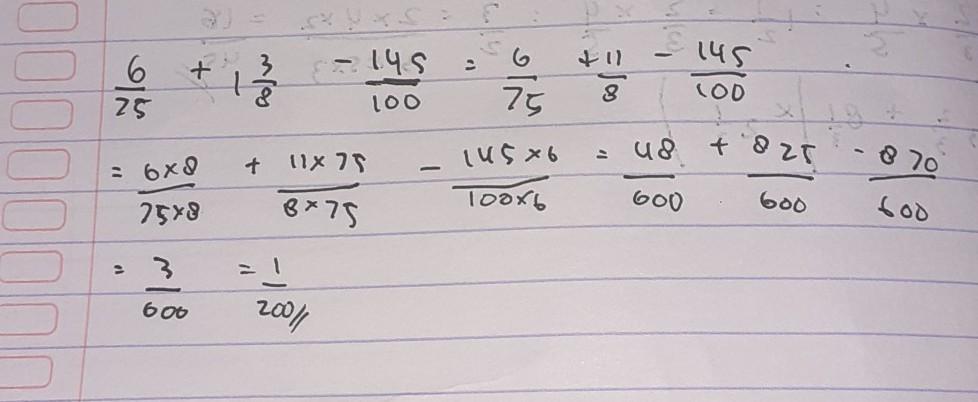 6/25 + 1 3/8 - 145/100 = 6/75 + 11/8 - 145/100
= 6×8/75×8 + 11×75/8×75 - 145×6/100×6 = 48/600 + 825/600 - 870/600
= 3/600 = 1/200//